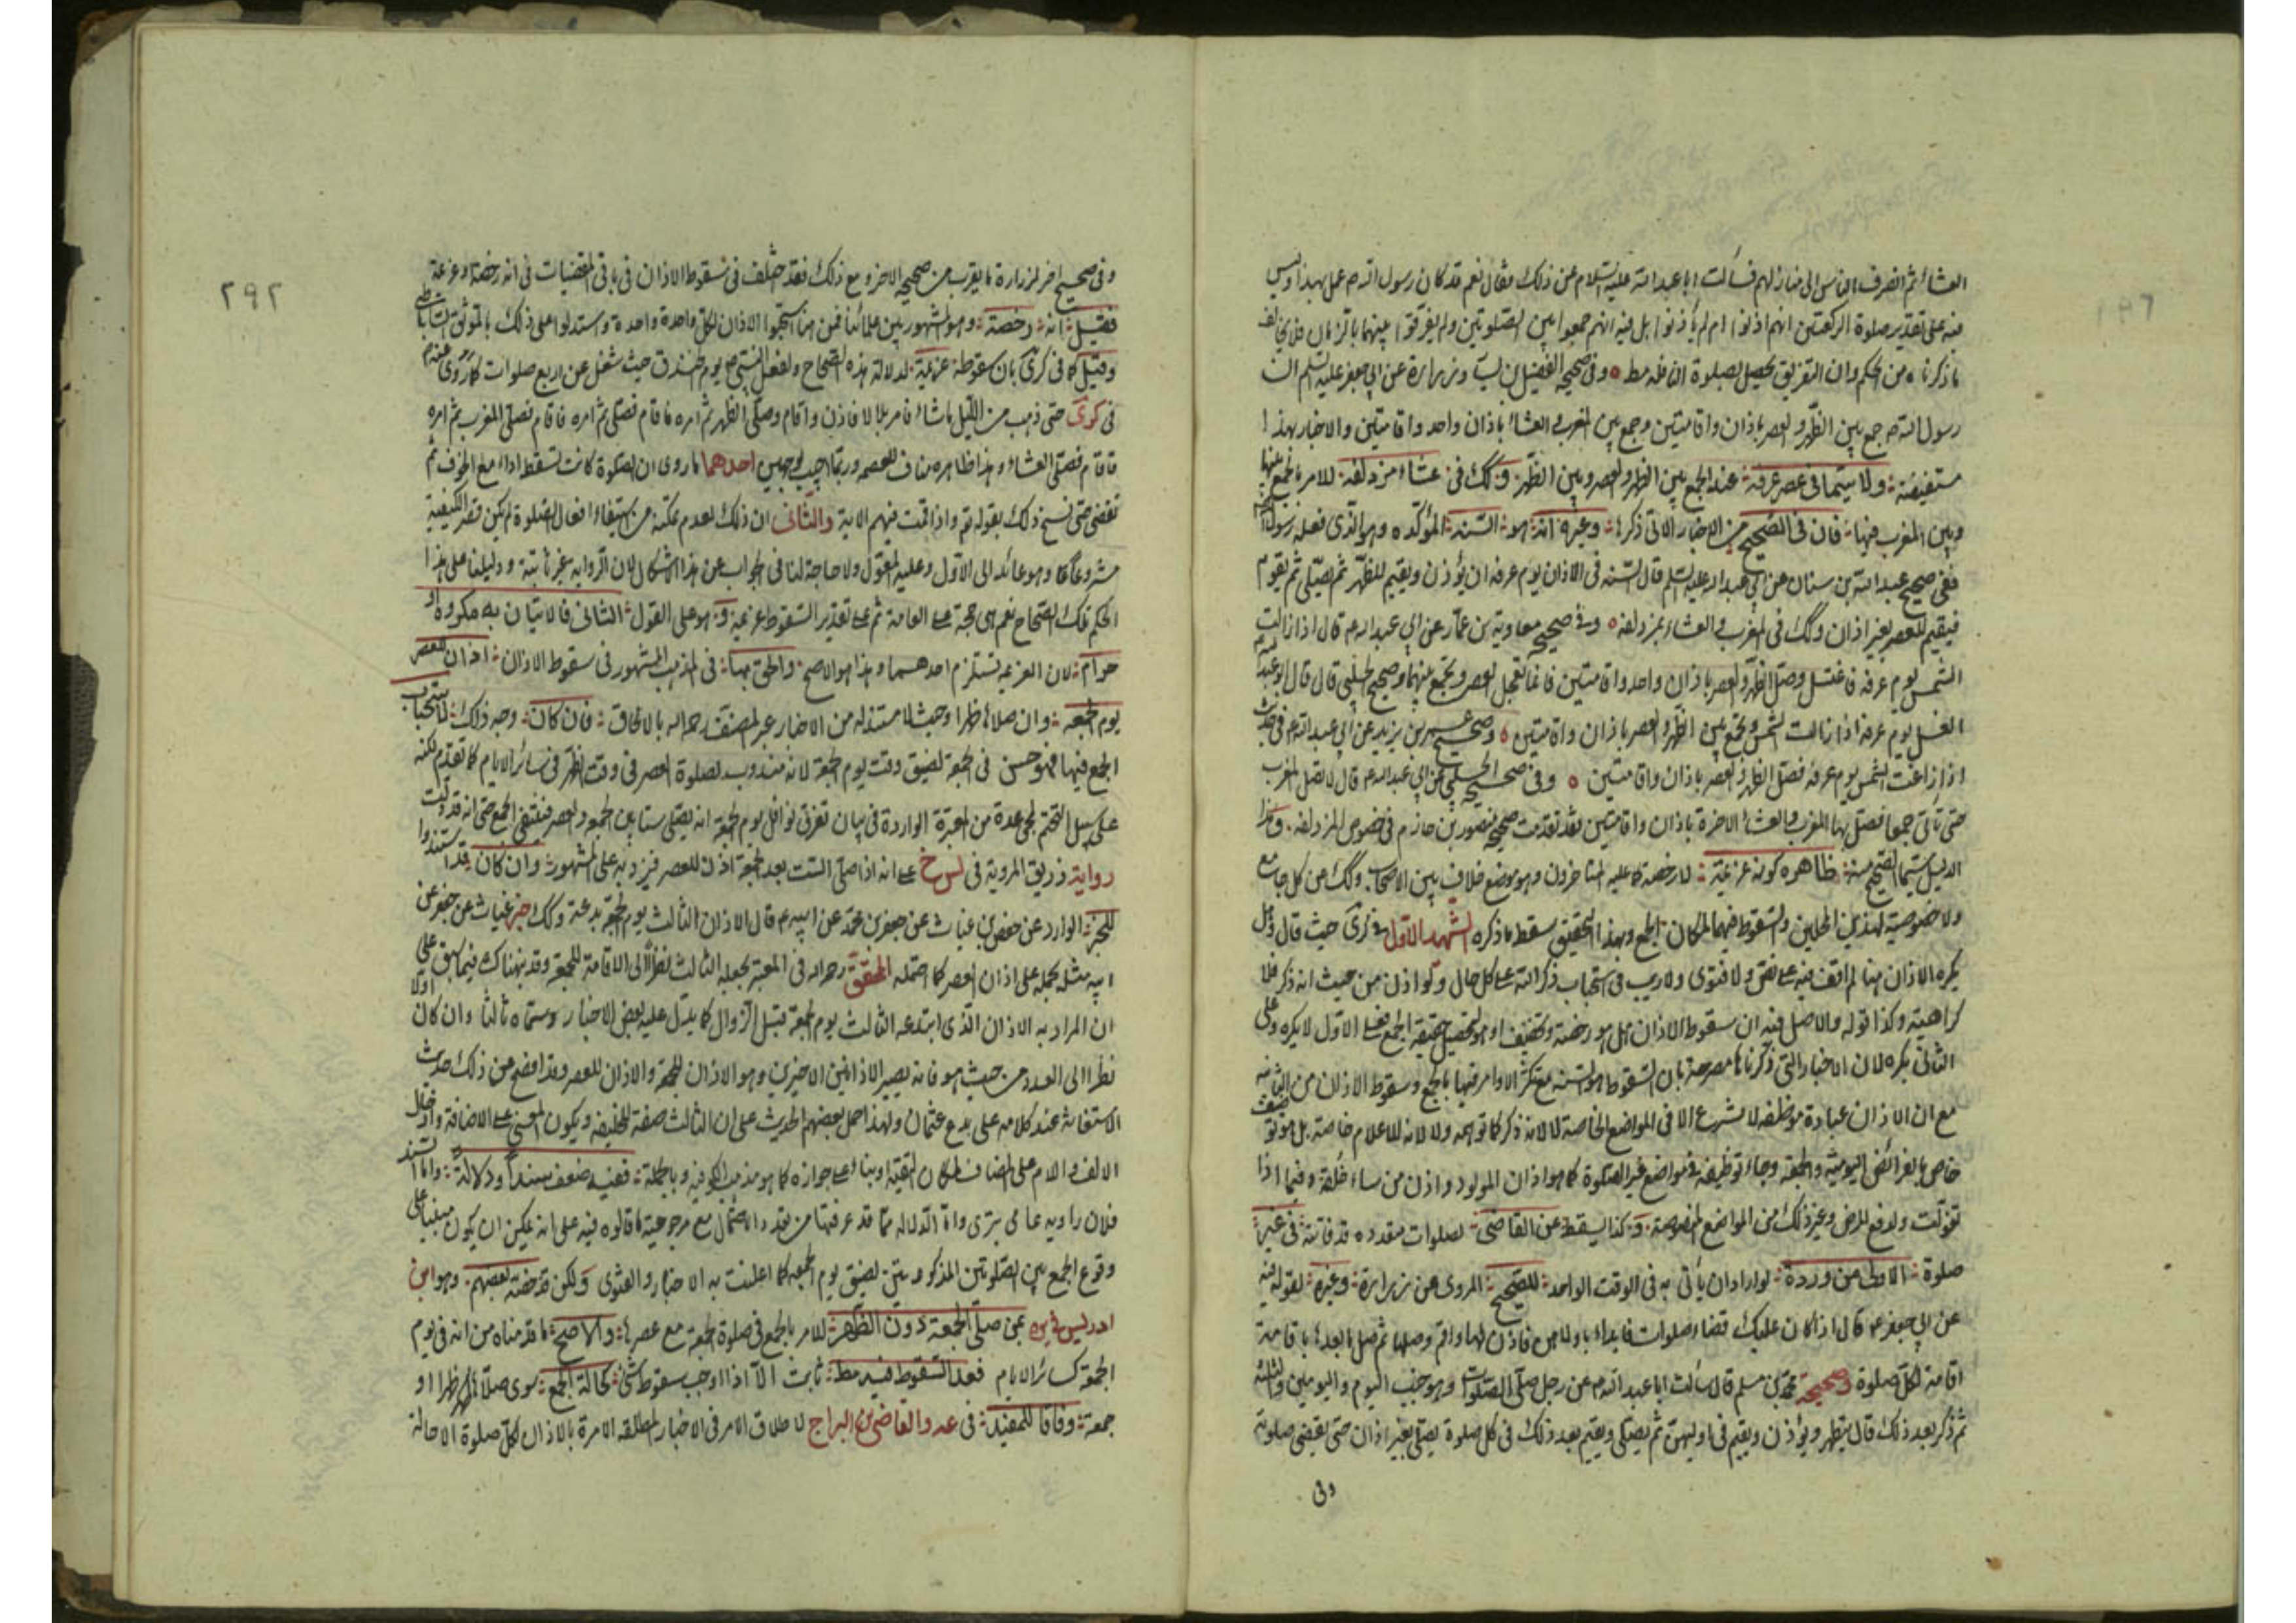 العشاء ثم انصرف الناس الى منازلهم فسألت ابا عبد الله عليه السلام عن ذلك فقال نعم قد كان رسول الله ص عمل بهذا وليس
فيه على تقدير صلوة الركعتين انهم اذنوا ام لم يأذنوا بل فيه انهم جمعوا بين الصلوتين ولم يفرقوا بينهما بالزمان فلا يخالف
ما ذكرناه من الحكم وان التفريق يحصل بصلوة النافلة مط ه وفي صحيحه الفضيل بن يسار وزرارة عن ابي جعفر عليه السلم ان
رسول الله ص جمع بين الظهر والعصر باذان واقامتين وجمع بين المغرب والعشاء باذان واحد واقامتين والاخبار بهذا
مستفيضة ولا سيما في عصر عرفة عند الجمع بين الظهر والعصر وبين الظهر وكك في عشاء مزدلفة للامر بالجمع بينها
وبين المغرب فيها فان في الصحيح من الاخبار الاتي ذكرها وغيره انه هو السنة المؤكده وهو الذي فعله رسول الله
ففي صحيح عبد الله بن سنان عن ابي عبد الله عليه السلم قال السنه في الاذان يوم عرفه ان يؤذن ويقيم للظهر ثم يصلي ثم يقوم
فيقيم للعصر بغير اذان وكك في المغرب والعشاء بمزدلفه ه وفي صحيحه معاوية بن عمار عن ابي عبد الله ع قال اذا زالت
الشمس يوم عرفه فاغتسل وصل الظهر والعصر باذان واحد واقامتين فانما تعجل العصر وتجمع بينهما وصحيح الحلبي قال قال ابو عبد
الغسل يوم عرفه اذا زالت الشمس وتجمع بين الظهر والعصر باذان واقامتين ه وصحيح عمر بن يزيد عن ابي عبد الله ع في حديث
اذا زاغت الشمس يوم عرفه فصل الظهر والعصر باذان واقامتين ه وفي صحيح الحلبي عن ابي عبد الله ع قال لا تصل المغرب
حتى تأتي جمعا فصل بها المغرب والعشاء الاخرة باذان واقامتين فقد تقدمت صحيحه منصور بن حازم في خصوص المزدلفه وهذا
الدليل سيما الصحيح منه ظاهره كونه عزيمة لا رخصة كما عليه المتاخرون وهو موضع خلاف بين الاصحاب وكك من كل جامع
ولا خصوصية لهذين المحلين والسقوط فيهما لمكان الجمع وبهذا التحقيق سقط ما ذكره الشهيد الاول في كرى حيث قال وهل
يكره الاذان هنا لم اقف فيه على نص ولا فتوى ولا ريب في استحباب ذكر الله على كل حال ولو اذن من حيث انه ذكر فلا
كراهية وكذا قوله والاصل فيه ان سقوط الاذان هل هو رخصة وتخفيف او هو لتحصيل حقيقة الجمع فعلى الاول لا يكره وعلى
الثاني يكره لان الاخبار التي ذكرناها مصرحة بان السقوط هو السنه مع تكثر الاوامر فيها بالجمع وسقوط الاذان من الثانيه
مع ان الاذان عبادة موظفه لا تشرع الا في المواضع الخاصة لا لانه ذكر كما توهمه ولا لانه للاعلام خاصة بل هو توقيف
خاص بالفرائض اليومية والجمعة وجاء توظيفه في مواضع غير الصلوة كما هو اذان المولود واذن من ساء خلقه وفيما اذا
تغولت ولدفع المرض وغير ذلك من المواضع المنصوصة وكذا يسقط عن القاضي لصلوات متعدده قد فاتته في غير
صلوة الاولى من وردة لو اراد ان يأتي به في الوقت الواحد للصحيح المروي عن زرارة وغيره لقوله فيه
عن ابي جعفر ع قال اذا كان عليك قضاء صلوات فابداء باولاهن فاذن لها واقم وصلها ثم صل ما بعدها باقامة
اقامة لكل صلوة وصحيحة محمد بن مسلم قال سألت ابا عبد الله ع عن رجل صلى الصلوات وهو جنب اليوم واليومين والثلثه
ثم ذكر بعد ذلك قال يتطهر ويؤذن ويقيم في اوليهن ثم يصلي ويقيم بعد ذلك في كل صلوة يصلي بغير اذان حتى يقضي صلوته
وفي
٢٩٢
وفي صحيح اخر لزرارة ما يقرب من صحيحه الاخر ومع ذلك فقد اختلف في سقوط الاذان في باقي المقضيات في انه رخصة او عزيمة
فقيل انه رخصة وهو المشهور بين علمائنا فمن هنا استحبوا الاذان لكل واحدة واحدة واستدلوا على ذلك بالموثق الساباطي
وقيل كما في كرى بان سقوطه عزيمة لدلالة هذه الصحاح ولفعل النبي ص يوم الخندق حيث شغل عن اربع صلوات كما روى
في كرى حتى ذهب من الليل ما شاء فامر بلالا فاذن واقام وصلى الظهر ثم امره فاقام فصلى ثم امره فاقام فصلى المغرب ثم امره
فاقام فصلى العشاء وهذا ظاهره مناف للعصمه وربما اجيب بوجهين احدهما ما روى ان الصلوة كانت تسقط اداء مع الخوف ثم
تقضى حتى نسخ ذلك بقوله تع واذا كنت فيهم الاية والثاني ان ذلك لعدم تمكنه من استيفاء افعال الصلوة لم يكن قصر الكيفية
مشروعا وهو عائد الى الاول وعليه المعول ولا حاجة لنا في الجواب عن هذا الاشكال لان الرواية غير ثابتة ودليلنا على هذا
الحكم تلك الصحاح نعم هي حجة على العامة ثم على تقدير السقوط عزيمة وهو على القول الثاني فالاتيان به مكروه او
حرام لان العزيمه تستلزم احدهما وهذا هو الاصح والحق بها في المذهب المشهور في سقوط الاذان اذان العصر
يوم الجمعه وان صلاها ظهرا وحيث لا مستند له من الاخبار عبر المصنف رحمه الله بالالحاق فان كان وجه ذلك لاستحباب
الجمع فيها فهو حسن في الجمعة لضيق وقت يوم الجمعة لانه مندوب لصلوة العصر في وقت الظهر في سائر الايام كما تقدم لكنه
على سبيل التحتم لمجي عدة من المعتبرة الواردة في بيان تفرق نوافل يوم الجمعة انه يصلي ستا بين الجمعة والعصر فينتفي الجمع حتى انه قد دلت
رواية زريق المروية في لس خ على انه اذا صلى الست بعد الجمعة اذن للعصر فيزيد به على المشهور وان كان قد استندوا
للخبر الوارد عن حفص بن غياث عن جعفر بن محمد عن ابيه ع قال الاذان الثالث يوم الجمعة بدعة وكك خبر غياث عن جعفر عن
ابيه مثله بحمله على اذان العصر كما احتمله المحقق رحمه الله في المعتبر بجعله الثالث نظرا الى الاقامة للجمعة وقد نبهناك فيما سبق على
ان المراد به الاذان الذي ابتدعه الثالث يوم الجمعة قبل الزوال كما يدل عليه بعض الاخبار وسماه ثالثا وان كان اولا
نظرا الى العدد من حيث هو فانه يصير الاذانين الاخيرين وهو الاذان للجمعة والاذان للعصر وقد افصح عن ذلك حديث
الاستغاثة عند كلامه على بدع عثمان ولهذا حمل بعضهم الحديث على ان الثالث صفة للخليفه ويكون المعنى على الاضافة وادخال
الالف واللام على المضاف لمكان التقية او بناء على جوازه كما هو مذهب الكوفيه وبالجملة ففيه ضعف سندا ودلالة واما السند
فلان راويه عامي بتري واما الدلاله مما قد عرفتها من تعدد الاحتمال مع مرجوحية ما قالوه فيه على انه يمكن ان يكون مبنيا على
وقوع الجمع بين الصلوتين المذكورتين لضيق يوم الجمعة كما اعلنت به الاخبار والفتوى ولكن قد خصه بعضهم وهو ابن
ادريس في ئر بمن صلى الجمعة دون الظهر للامر بالجمع في صلوة الجمعة مع عصرها والاصح ما قدمناه من انه في يوم
الجمعة كسائر الايام فعدم السقوط فيه مط ثابت الا اذا اوجب سقوطه شئ كحالة الجمع سوى صلاها ظهرا او
جمعة وفاقا للمفيد في عه والقاضي بن البراج لاطلاق الامر في الاخبار المطلقه الامرة بالاذان لكل صلوة الا حالة